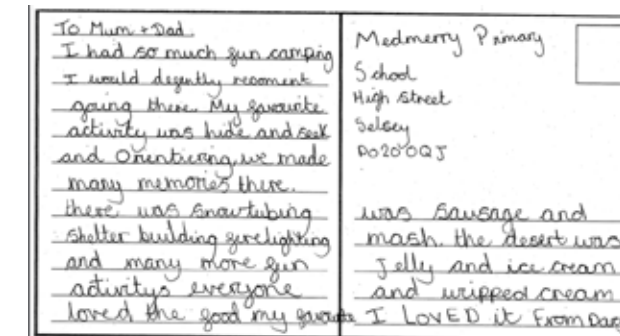 To Mum + Dad.
I had so much fun camping
I would degently recoment
going there. My favourite
activity was hide and seek
and Orienticring, we made
many memories there.
there was snowtubing
shelter building firelighting
and many more fun
activitys everyone
loved the food my favourite
Medmerry Primary
School
High Street
Selsey
PO20 0QJ
was sausage and
mash. the desert was
Jelly and ice cream
and wripped cream
I LOVED it From